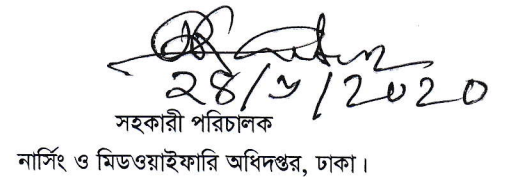 সহকারী পরিচালক
নার্সিং ও মিডওয়াইফারি অধিদপ্তর, ঢাকা।